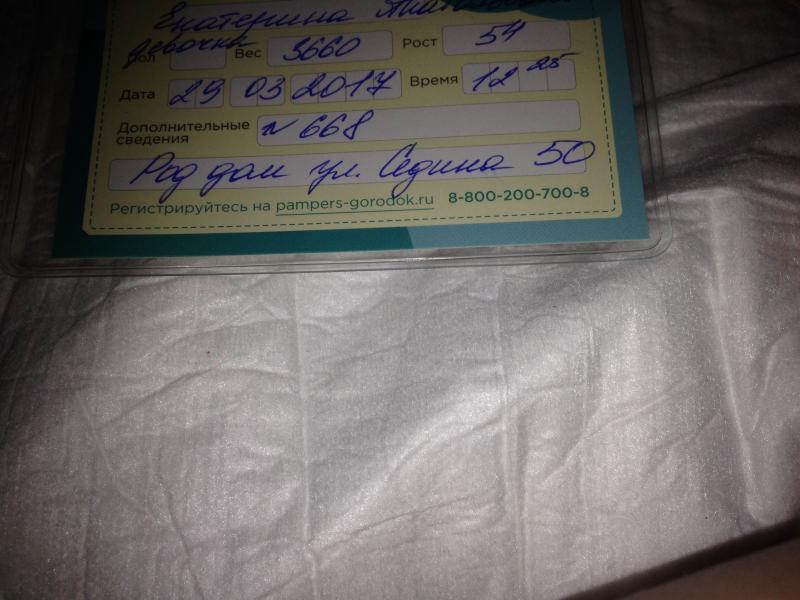 Екатерина Анатольевна
девочка
Пол Вес 3660 Рост 54
Дата 29 03 2017 Время 12 25
Дополнительные сведения N 668
Род дом ул. Седина 50
Регистрируйтесь на pampers-gorodok.ru 8-800-200-700-8